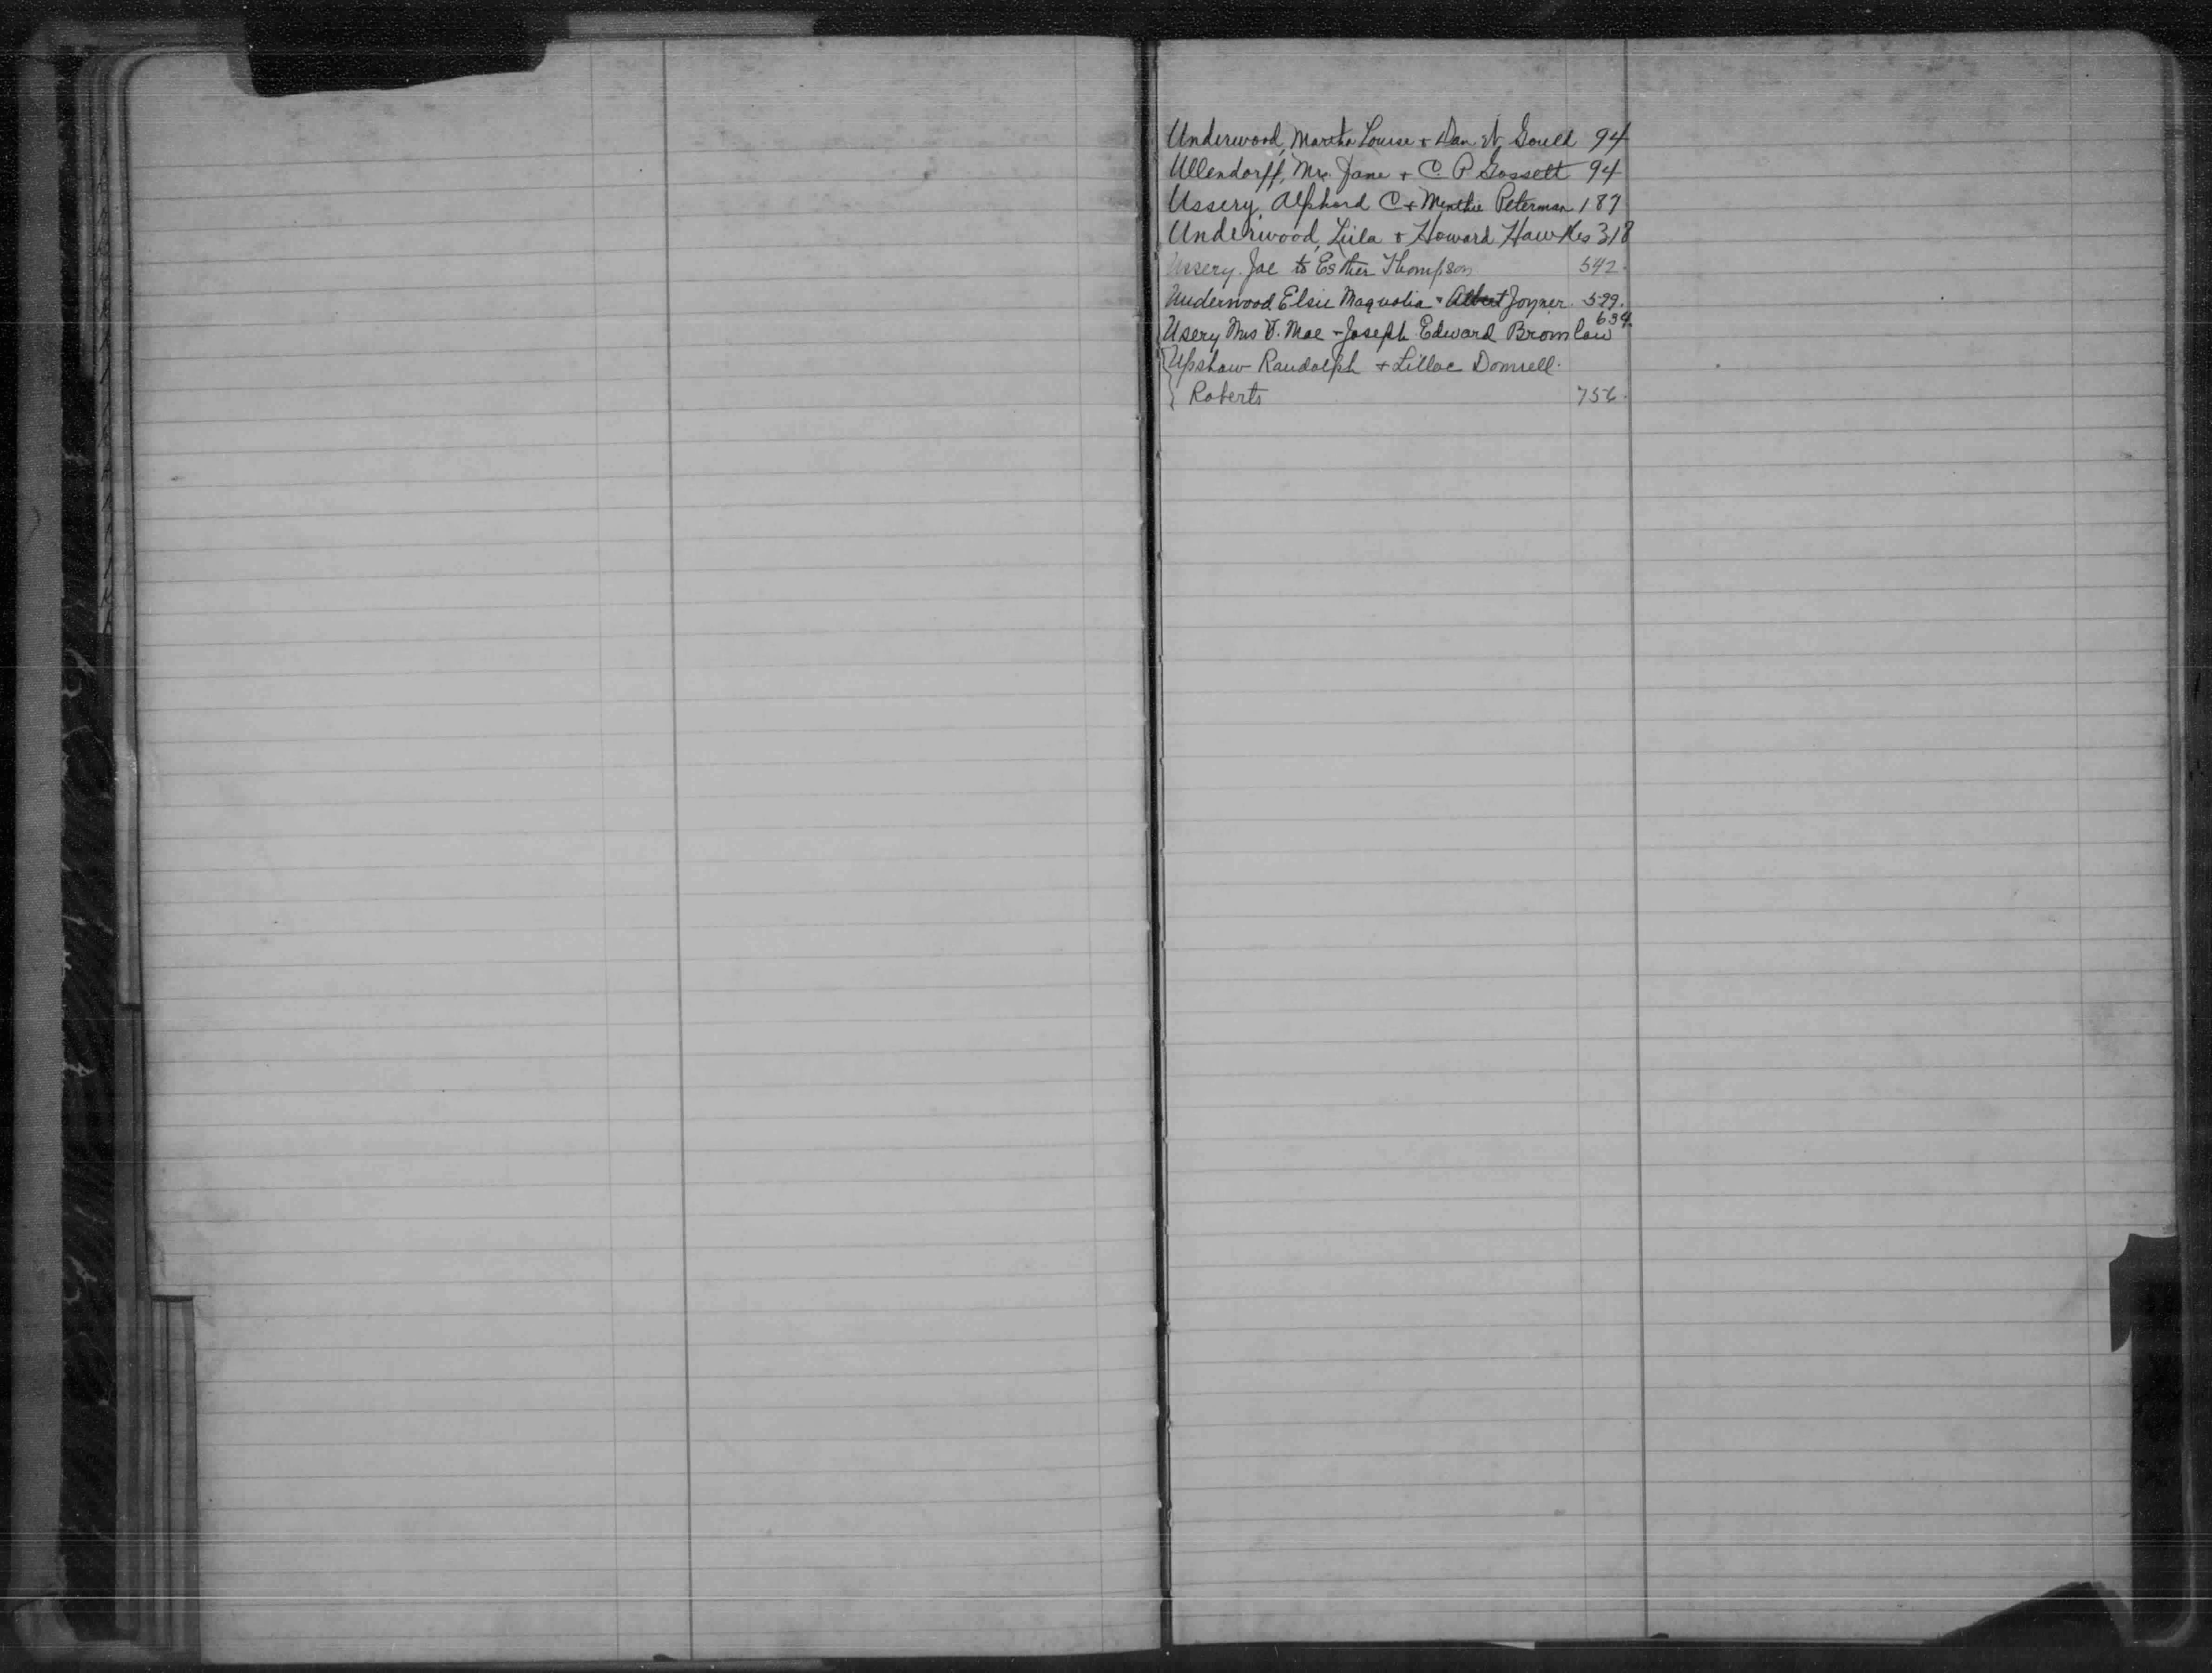 Underwood, Martha Louise + Dan W Gould 94
Ullendorff, Mrs. Jane + C P Gossett 94
Ussery, Alphord C + Minthie Peterman 187
Underwood, Lula + Howard Hawkes 318
Ussery. Joe to Esther Thompson 542.
Underwood Elsie Magnolia - Albert Joyner. 599.
Usery Mrs V. Mae - Joseph Edward Bromlow 634.
Upshaw Randolph + Lillac
Roberts 756.